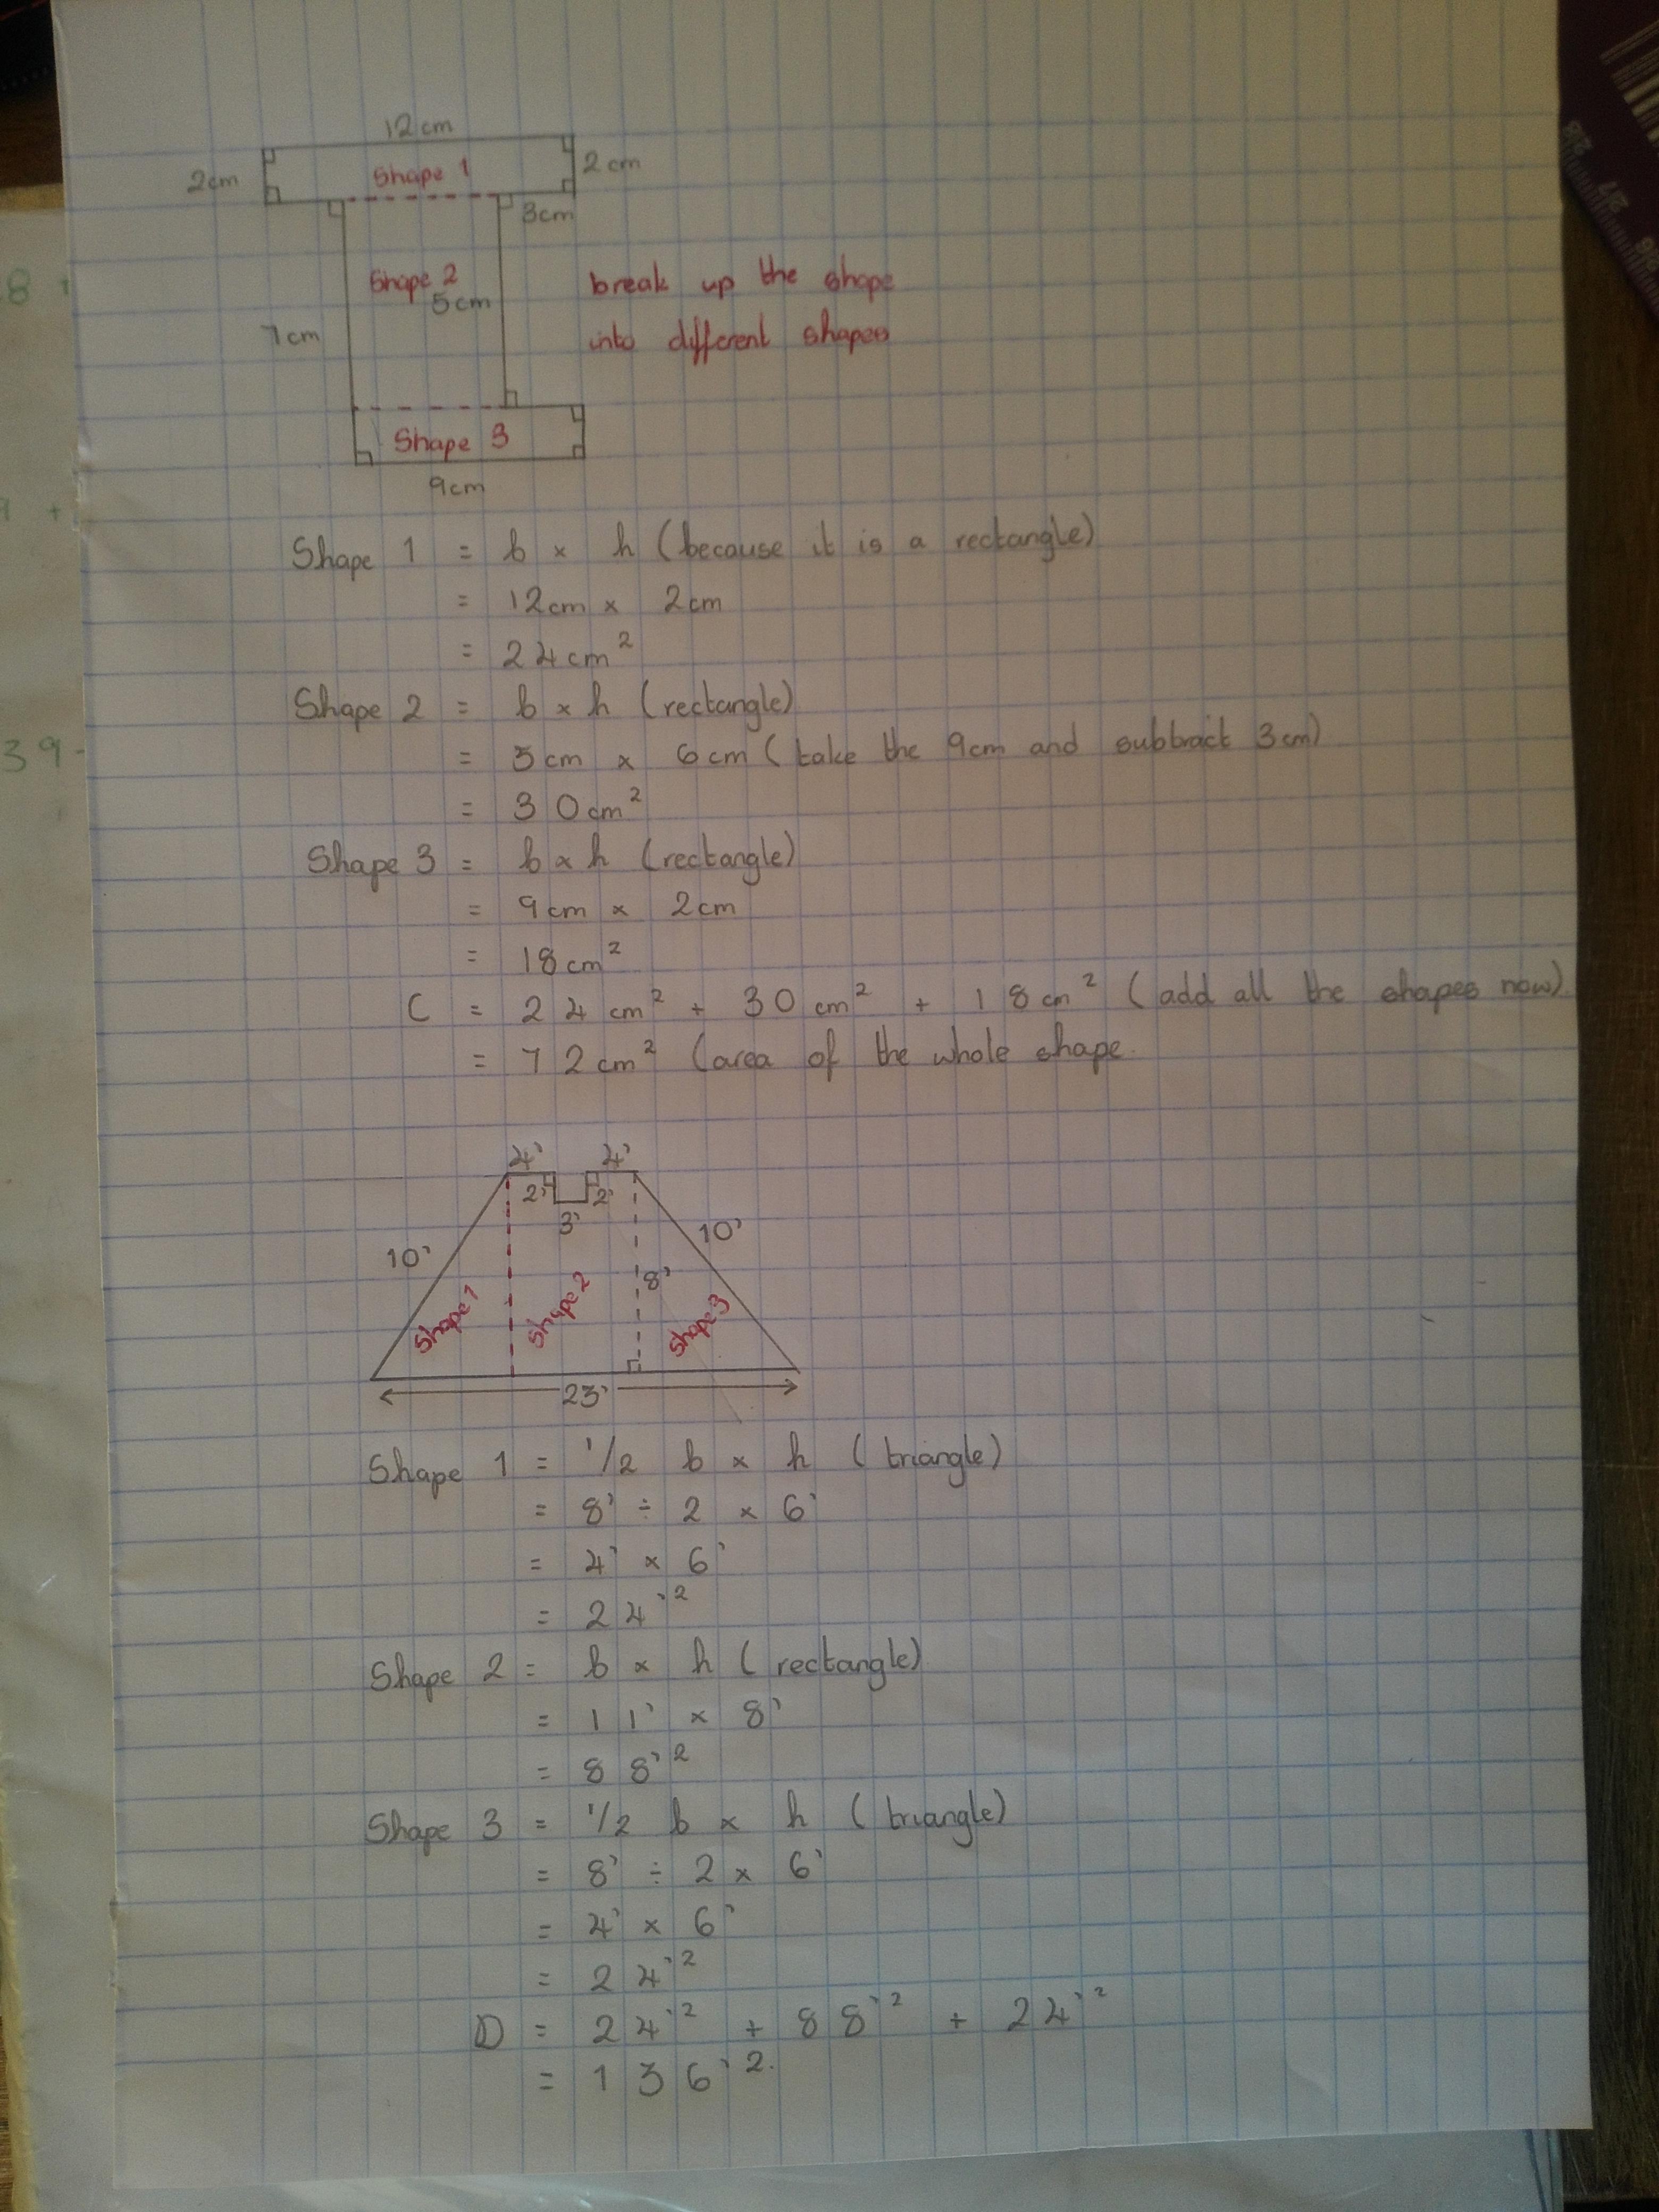 12cm
2cm
Shape 1
2cm
3cm
Shape 2
5cm
break up the shape
7cm
into different shapes
Shape 3
9cm
Shape 1 = b × h (because it is a rectangle)
= 12cm × 2cm
= 24cm²
Shape 2 = b × h (rectangle)
= 5cm × 6cm (take the 9cm and subtract 3cm)
= 30cm²
39-
Shape 3 = b × h (rectangle)
= 9cm × 2cm
= 18cm²
C = 24cm² + 30cm² + 18cm² (add all the shapes now)
= 72cm² (area of the whole shape.
4' 4'
2' 2'
3'
10' 10'
8'
Shape 1 Shape 2 Shape 3
23'
Shape 1 = 1/2 b × h (triangle)
= 8' ÷ 2 × 6'
= 4' × 6'
= 24'²
Shape 2 = b × h (rectangle)
= 11' × 8'
= 88'²
Shape 3 = 1/2 b × h (triangle)
= 8' ÷ 2 × 6'
= 4' × 6'
= 24'²
D = 24'² + 88'² + 24'²
= 136'².